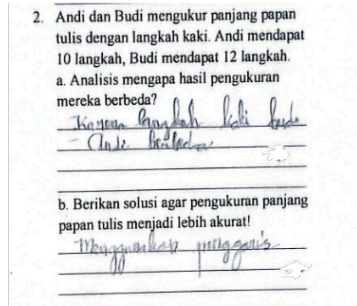 2. Andi dan Budi mengukur panjang papan
tulis dengan langkah kaki. Andi mendapat
10 langkah, Budi mendapat 12 langkah.
a. Analisis mengapa hasil pengukuran
mereka berbeda?
Karena langkah kaki budi
- Andi berbeda
b. Berikan solusi agar pengukuran panjang
papan tulis menjadi lebih akurat!
Menggunakan penggaris